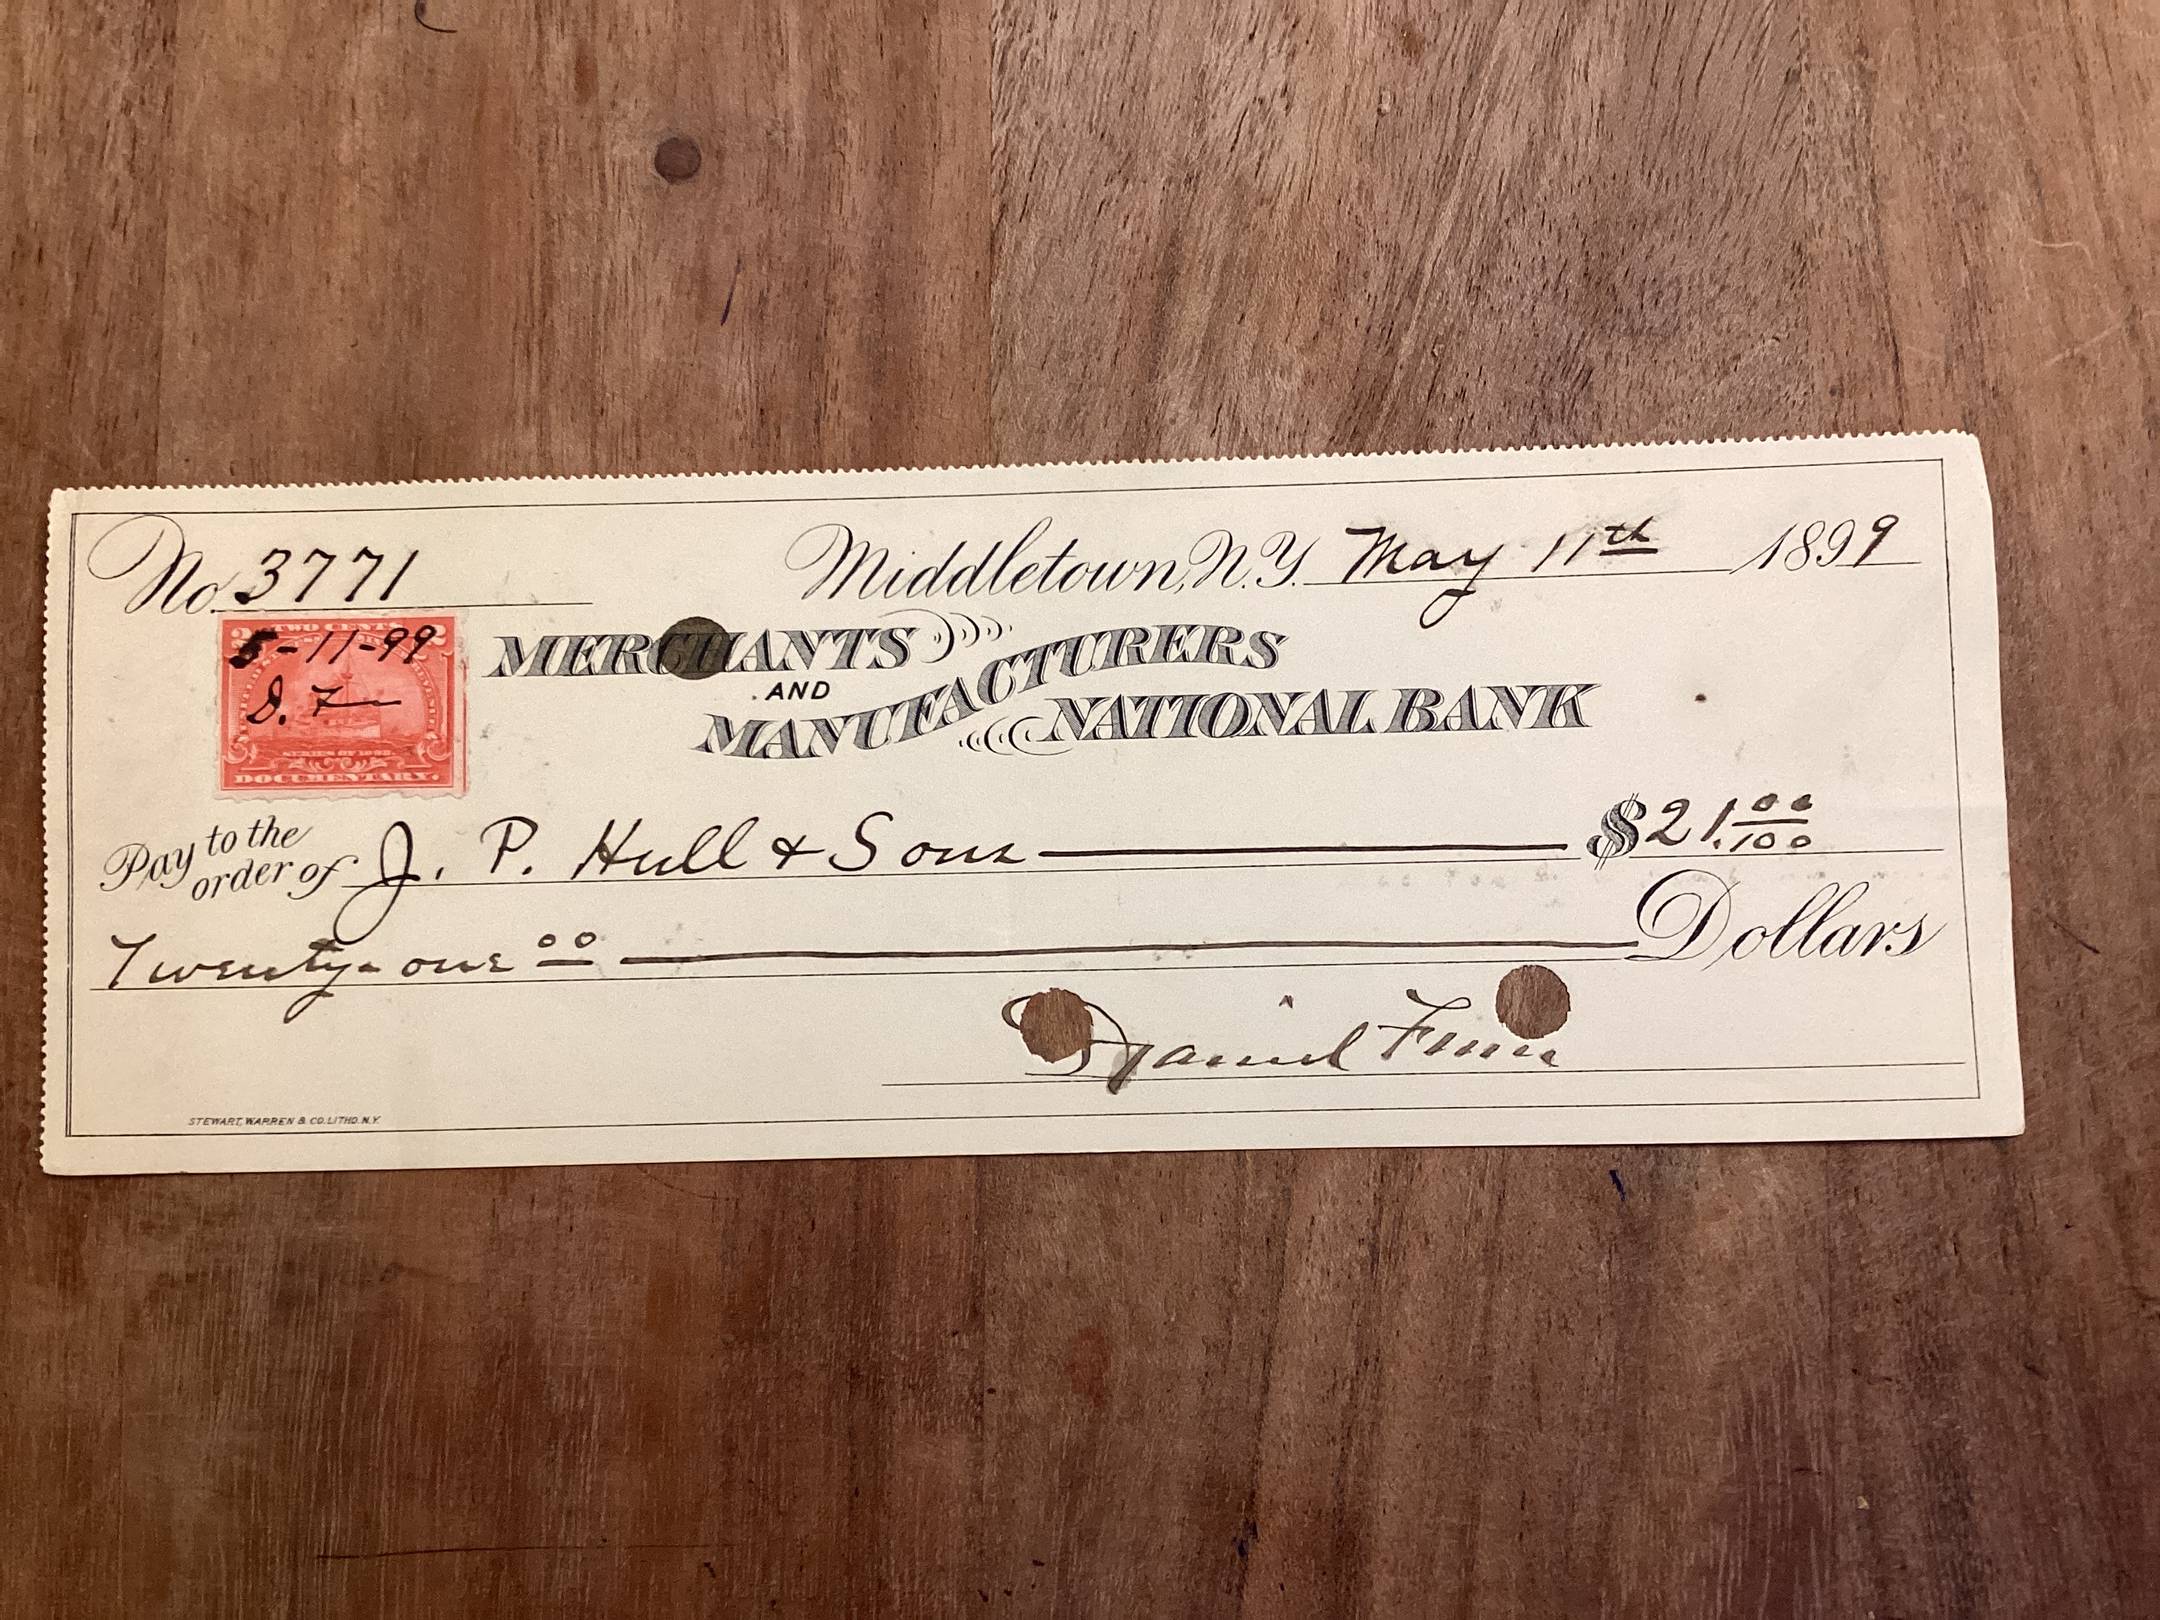 No. 3771
Middletown, N.Y. May 11th 1899
TWO CENTS
5-11-99
D. F
SERIES OF 1898
DOCUMENTARY.
MERCHANTS
AND
MANUFACTURERS
NATIONAL BANK
Pay to the order of J. P. Hull & Sons $21.00/100
Twenty-one 00 Dollars
Daniel Finn
STEWART, WARREN & CO. LITHO. N.Y.